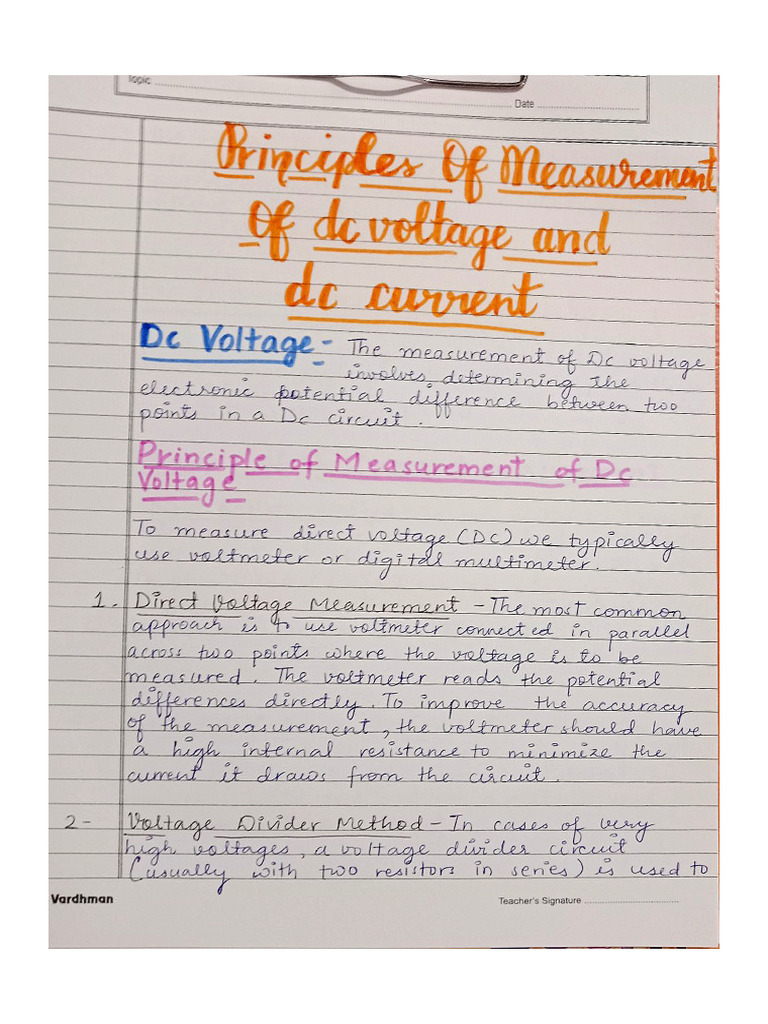 Topic
Date
Principles Of Measurement
Of dc voltage and
dc current
Dc Voltage - The measurement of Dc voltage
involves determining the
electronic potential difference between two
points in a Dc circuit.
Principle of Measurement of Dc
Voltage
To measure direct voltage (DC) we typically
use voltmeter or digital multimeter.
1. Direct Voltage Measurement - The most common
approach is to use voltmeter connected in parallel
across two points where the voltage is to be
measured. The voltmeter reads the potential
differences directly. To improve the accuracy
of the measurement, the voltmeter should have
a high internal resistance to minimize the
current it draws from the circuit.
2- Voltage Divider Method - In cases of very
high voltages, a voltage divider circuit
(usually with two resistors in series) is used to
Vardhman
Teacher's Signature